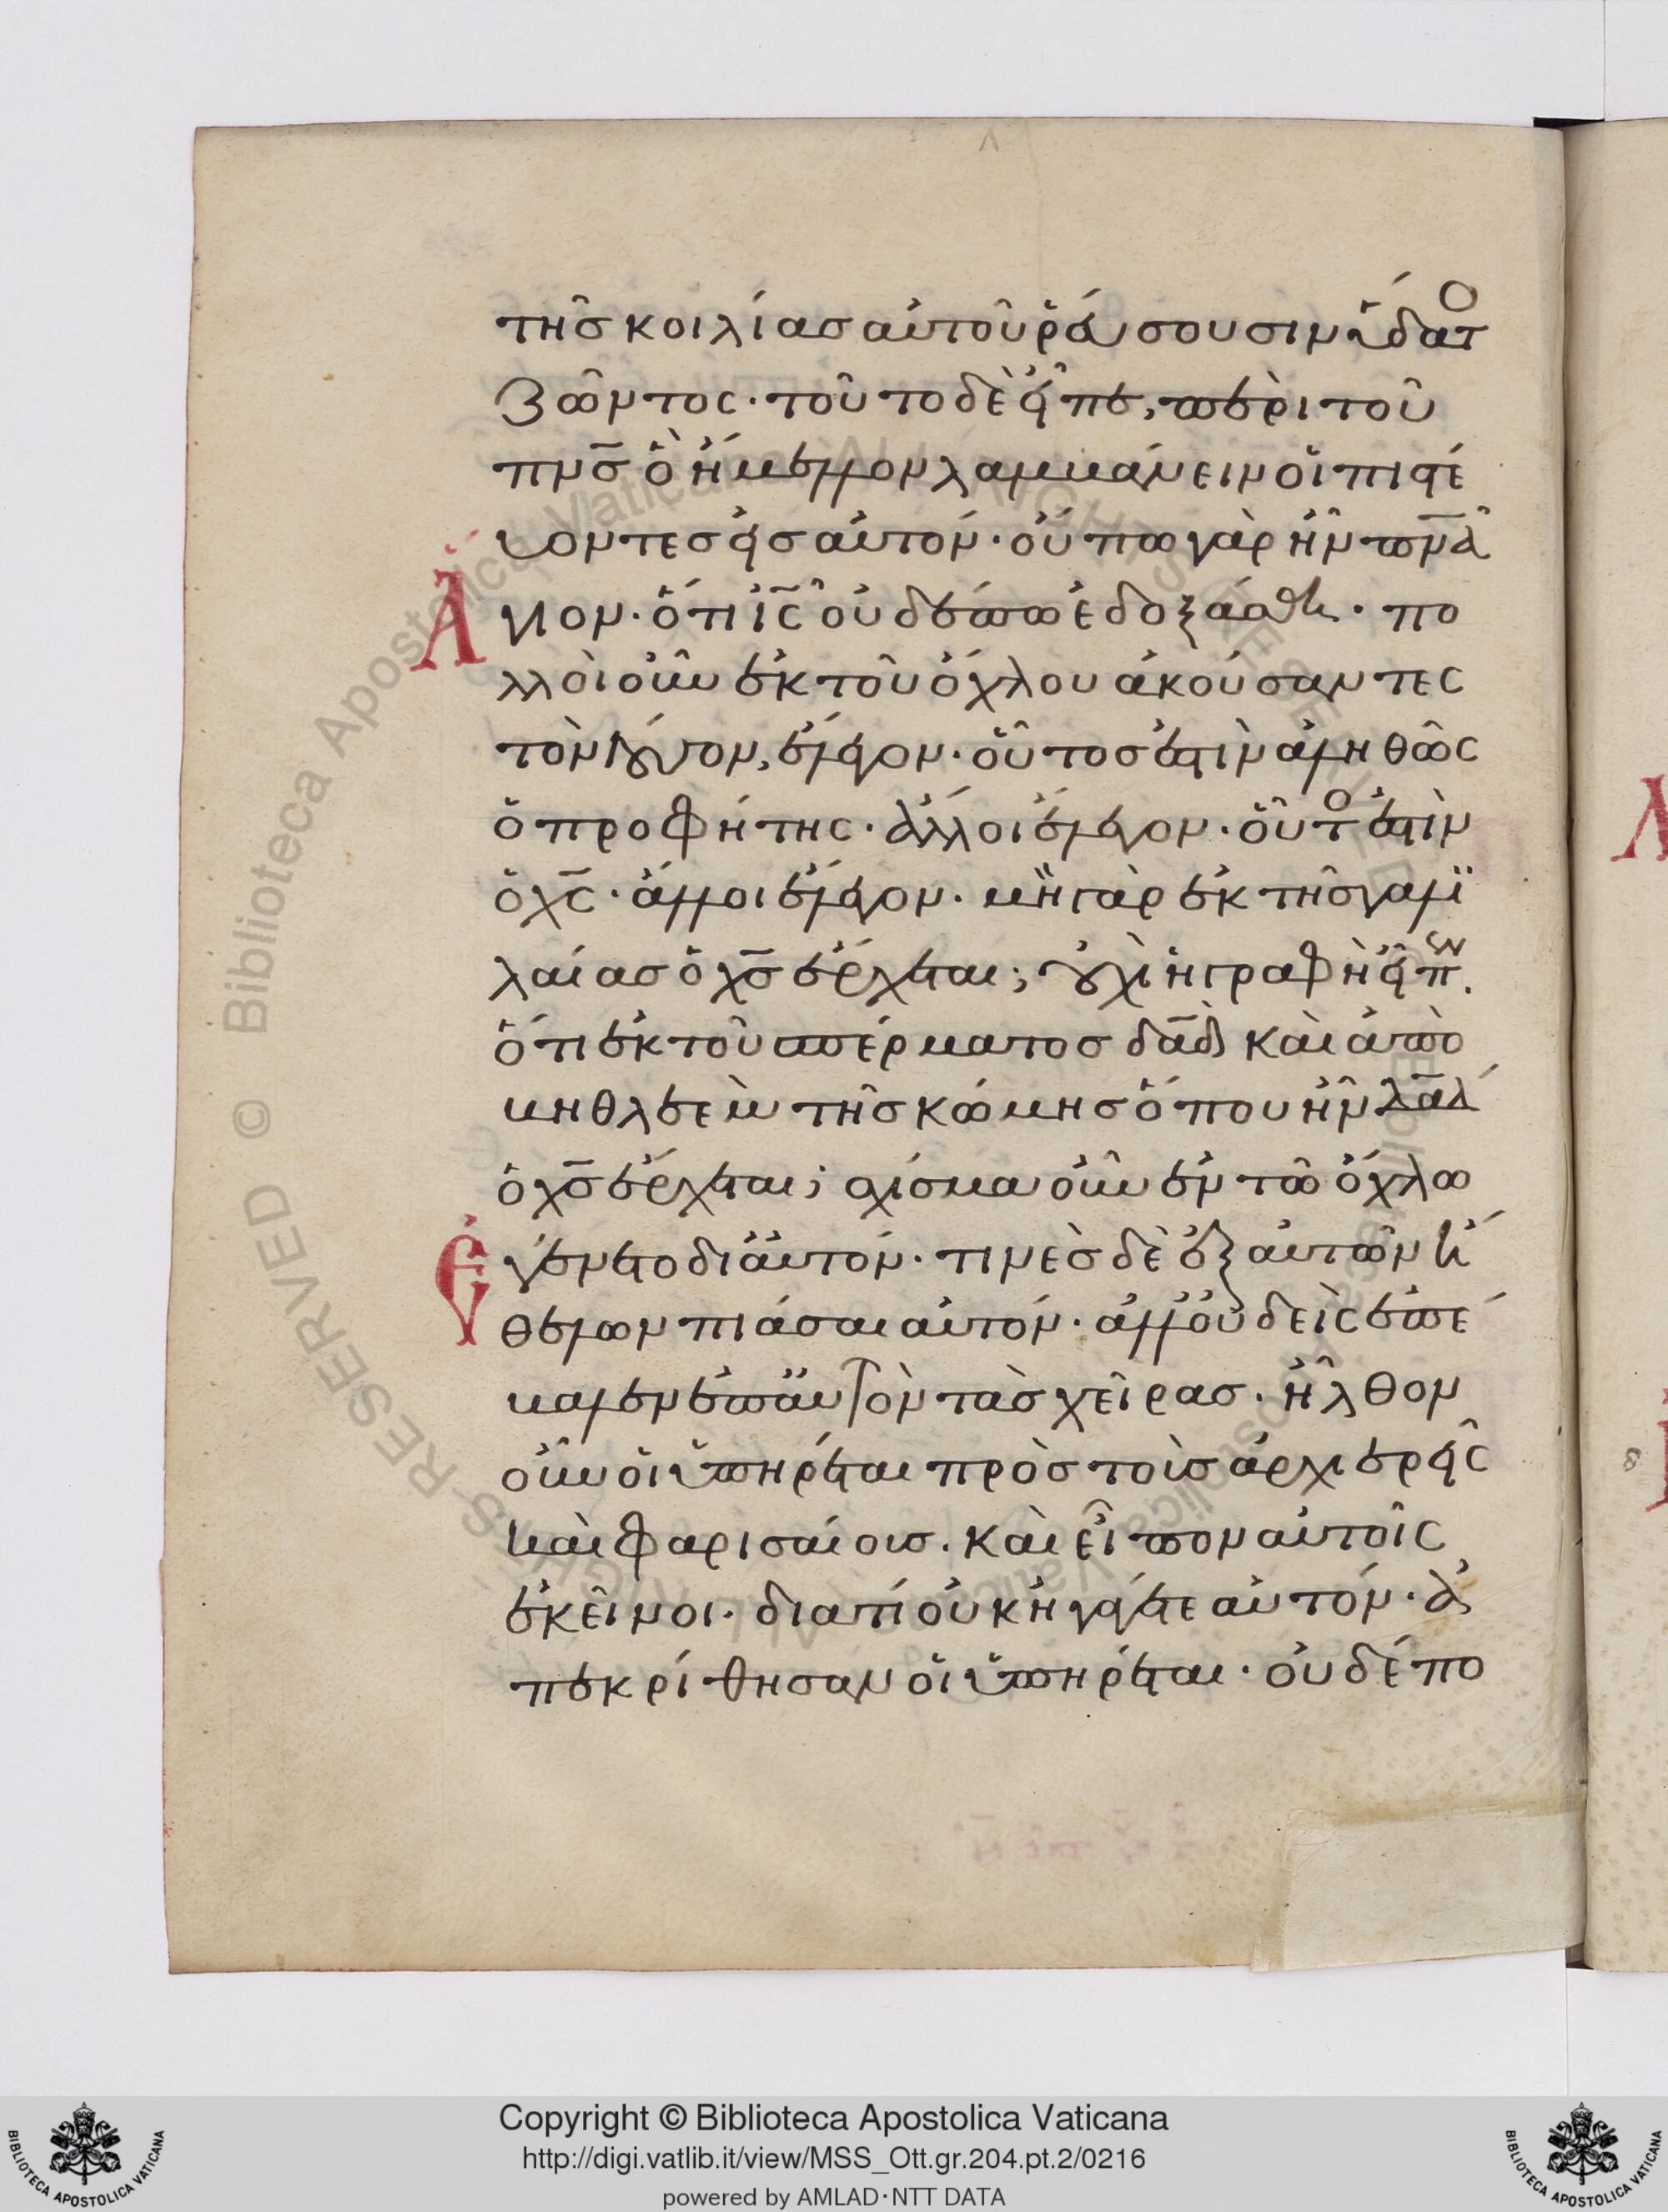 τῆς κοιλίας αὐτοῦ ῥεύσουσιν ὕδατο
ζῶντος· τοῦτο δὲ εἶπε, περὶ τοῦ
πνς̅ ὃ ἤμελλον λαμβάνειν οἱ πιστέ
υοντες εἰς αὐτόν· οὔπω γὰρ ἦν πνα̅
Ἅγιον· ὅτι ις̅ οὐδέπω ἐδοξάσθη· πο
λλοὶ οὖν ἐκ τοῦ ὄχλου ἀκούσαντες
τὸν λόγον, ἔλεγον· οὗτος ἐστὶν ἀληθῶς
ὁ προφήτης· ἄλλοι ἔλεγον· οὗτο ἐστὶν
ὁ χς̅· ἄλλοι ἔλεγον· μὴ γὰρ ἐκ τῆς γαλι
λαίας ὁ χς̅ ἔρχεται; οὐχὶ ἡ γραφὴ εἶπεν.
ὅτι ἐκ τοῦ σπέρματος δαδ̅ καὶ ἀπὸ
βηθλεεὲμ τῆς κώμης ὅπου ἦν δαδ̅
ὁ χς̅ ἔρχεται; σχίσμα οὖν ἐν τῷ ὄχλω
Ἐγένετο δι' αὐτόν· τινὲς δὲ ἐξ αὐτῶν ἤ
θελον πιάσαι αὐτόν· ἀλλ' οὐδεὶς ἐπέ
βαλεν ἐπ' αὐτὸν τὰς χεῖρας. ἦλθον
οὖν οἱ ὑπηρέται πρὸς τοὺς ἀρχιερεῖς
καὶ φαρισαίους. καὶ εἶπον αὐτοῖς
ἐκεῖνοι· διατί οὐκ ἠγάγετε αὐτόν· ἀ
πεκρίθησαν οἱ ὑπηρέται· οὐδέπο
Copyright © Biblioteca Apostolica Vaticana
http://digi.vatlib.it/view/MSS_Ott.gr.204.pt.2/0216
powered by AMLAD·NTT DATA